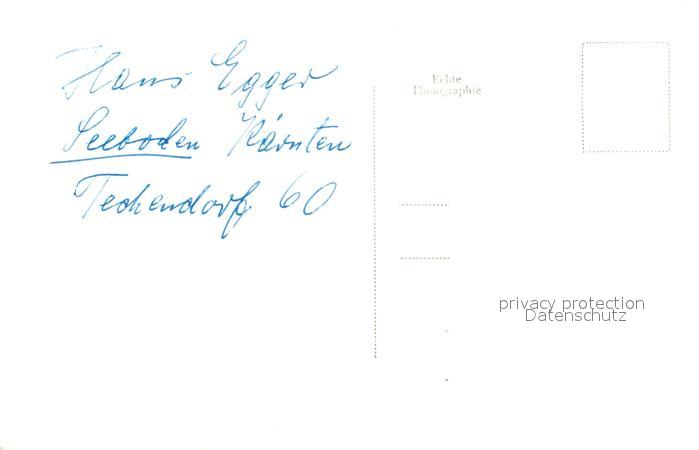 Hans Egger
Seeboden Kärnten
Techendorf 60
Echte
Photographie
privacy protection
Datenschutz